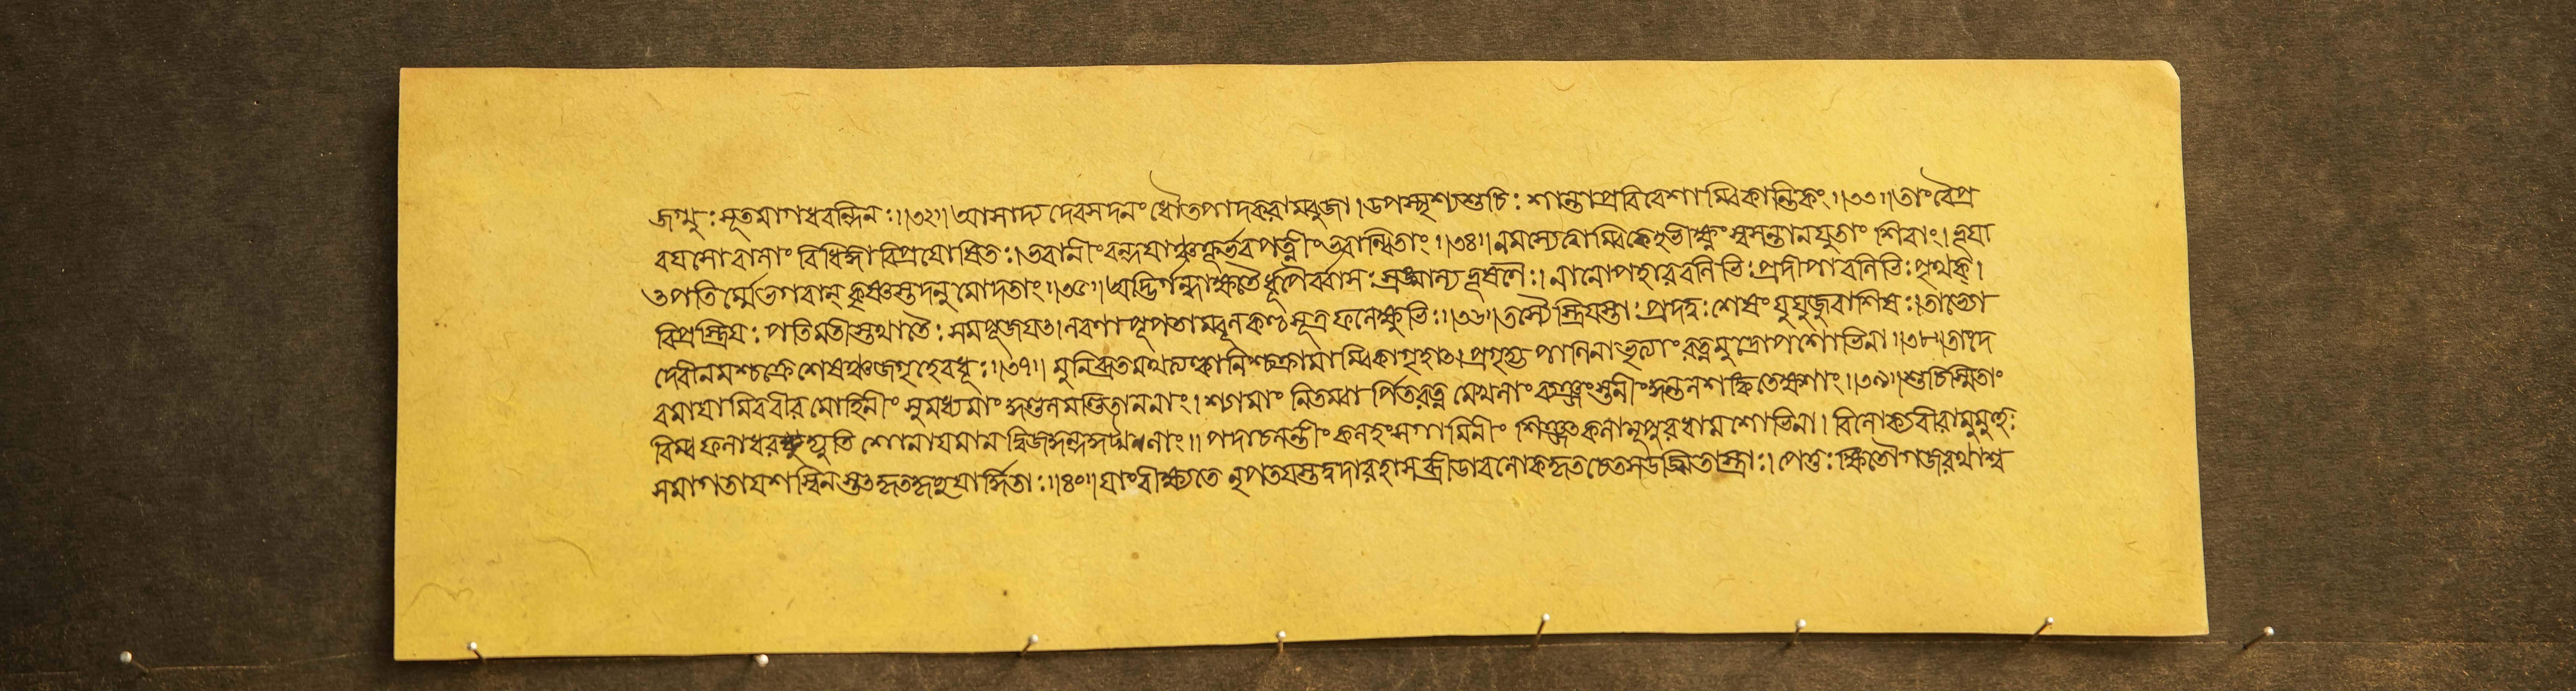 জগ্মুঃ সূতমাগধবন্দিনঃ॥৩২॥আসাদ্য দেবসদনং ধৌতপাদকরাম্বুজা।উপস্পৃশ্যশুচিঃ শান্তাপ্রবিবেশাম্বিকান্তিকং॥৩৩॥তাংবৈপ্র
বয়সোবালাং বিধিজ্ঞাবিপ্রযোষিতঃ।ভবানীংবন্দয়াঞ্চক্রুর্ভবপত্নীংভবান্বিতাং॥৩৪॥নমস্যেত্বাম্বিকেঽভীক্ষ্ণং স্বসন্তানযুতাং শিবাং।ভূয়া
ৎপতির্ম্মেভগবান্ কৃষ্ণস্তদনুমোদতাং॥৩৫॥অদ্ভির্গন্ধাক্ষতৈর্ধূপৈর্ব্বাসঃস্রঙ্মাল্যভূষণৈঃ। নানোপহারবলিভিঃপ্রদীপাবলিভিঃপৃথক্।
বিপ্রস্ত্রিয়ঃ পতিমতীস্তথাতৈঃ সমপূজয়ৎ।লবণাপূপতাম্বূলকণ্ঠসূত্রফলেক্ষুভিঃ॥৩৬॥তস্যৈস্ত্রিয়স্তাঃপ্রদদুঃশেষংযুযুজুরাশিষঃ।তাভ্যো
দেবীনমশ্চক্রেশেষঞ্চজগৃহেবধূঃ॥৩৭॥ মুনিব্রতমথত্যক্ত্বানিশ্চক্রামাম্বিকাগৃহাৎ।প্রগৃহ্য পাণিনাভৃত্যাংরত্নমুদ্রোপশোভিনা॥৩৮॥তাংদে
বমায়ামিববীরমোহিনীং সুমধ্যমাং কুণ্ডলমণ্ডিতাননাং।শ্যামাং নিতম্বার্পিতরত্ন মেখলাং ব্যঞ্জৎস্তনীংকুন্তলশঙ্কিতেক্ষণাং॥৩৯॥শুচিস্মিতাং
বিম্বফলাধরদ্যুতি শোণায়মানদ্বিজকুন্দকুদ্মলাং॥ পদাচলন্তীংকলহংসগামিনীং শিঞ্জৎকলানূপুরধামশোভিনা।বিলোক্যবীরামুমুহুঃ
সমাগতাযশস্বিনস্তৎকৃতহৃচ্ছয়ার্দ্দিতাঃ॥৪০॥যাংবীক্ষ্যতে নৃপতয়স্তদুদারহাসব্রীডাবলোকহৃতচেতসউজ্ঝিতাস্ত্রাঃ।পেতুঃক্ষিতৌগজরথাশ্ব